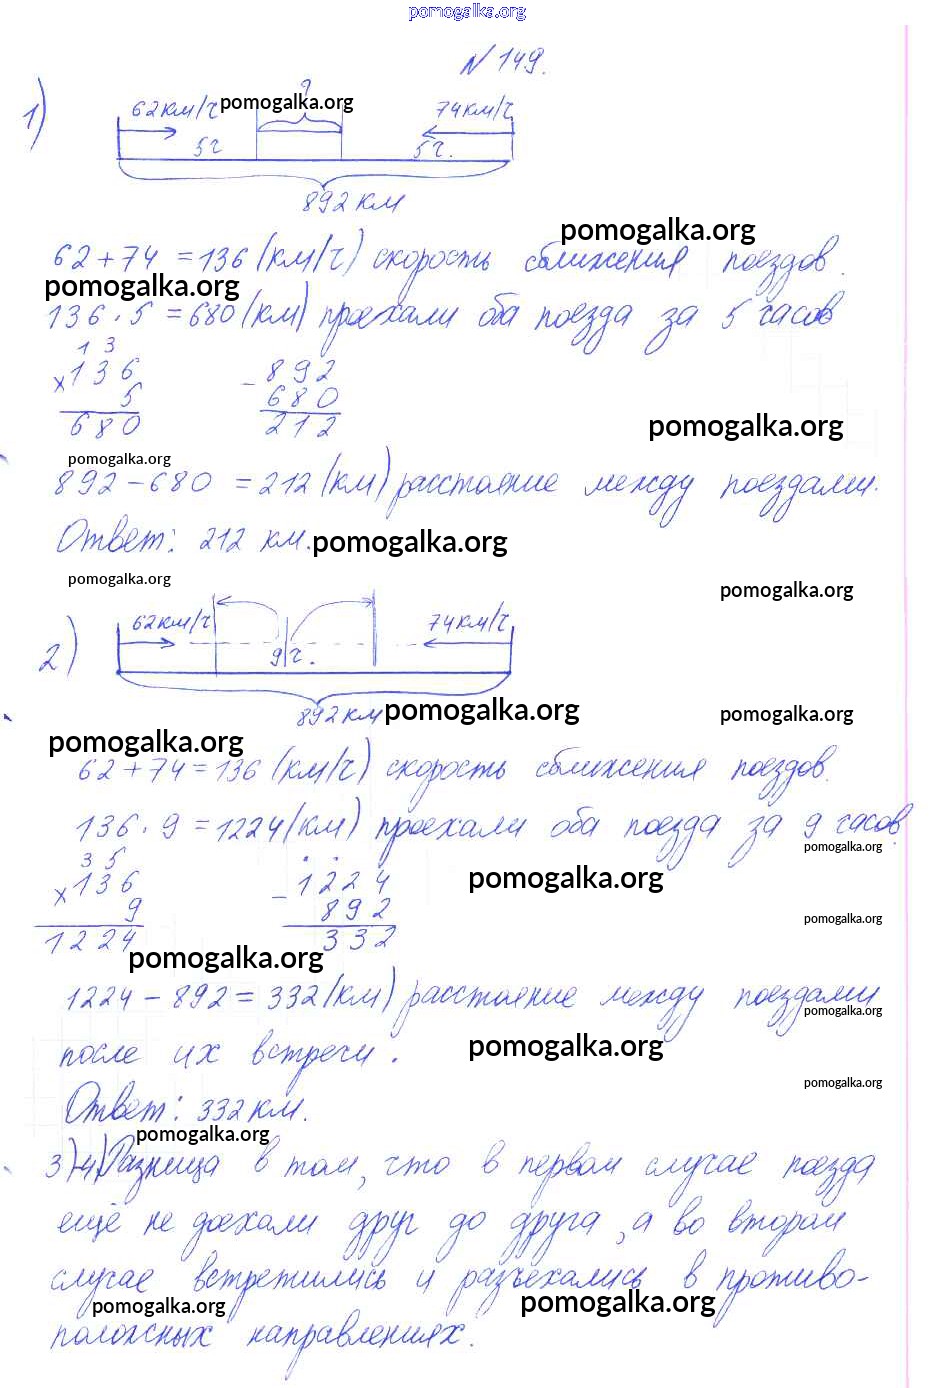 pomogalka.org
№ 149.
1)
?
62км/ч pomogalka.org 74км/ч
5ч 5ч.
892 км
pomogalka.org
62 + 74 = 136 (км/ч) скорость сближения поездов.
pomogalka.org
136 · 5 = 680 (км) проехали оба поезда за 5 часов
1 3
× 136 - 892
5 680
680 212
pomogalka.org
pomogalka.org
892 - 680 = 212 (км) расстояние между поездами.
Ответ: 212 км. pomogalka.org
pomogalka.org
pomogalka.org
2)
62км/ч 74км/ч
9ч.
892 км pomogalka.org pomogalka.org
pomogalka.org
62 + 74 = 136 (км/ч) скорость сближения поездов.
136 · 9 = 1224 (км) проехали оба поезда за 9 часов
pomogalka.org
3 5
× 136 - 1224
pomogalka.org
9 892
pomogalka.org
1224 332
pomogalka.org
1224 - 892 = 332 (км) расстояние между поездами
pomogalka.org
после их встречи.
pomogalka.org
pomogalka.org
Ответ: 332 км.
pomogalka.org
3)-4) Разница в том, что в первом случае поезда
ещё не доехали друг до друга, а во втором
случае встретились и разъехались в противо-
pomogalka.org pomogalka.org
положных направлениях.